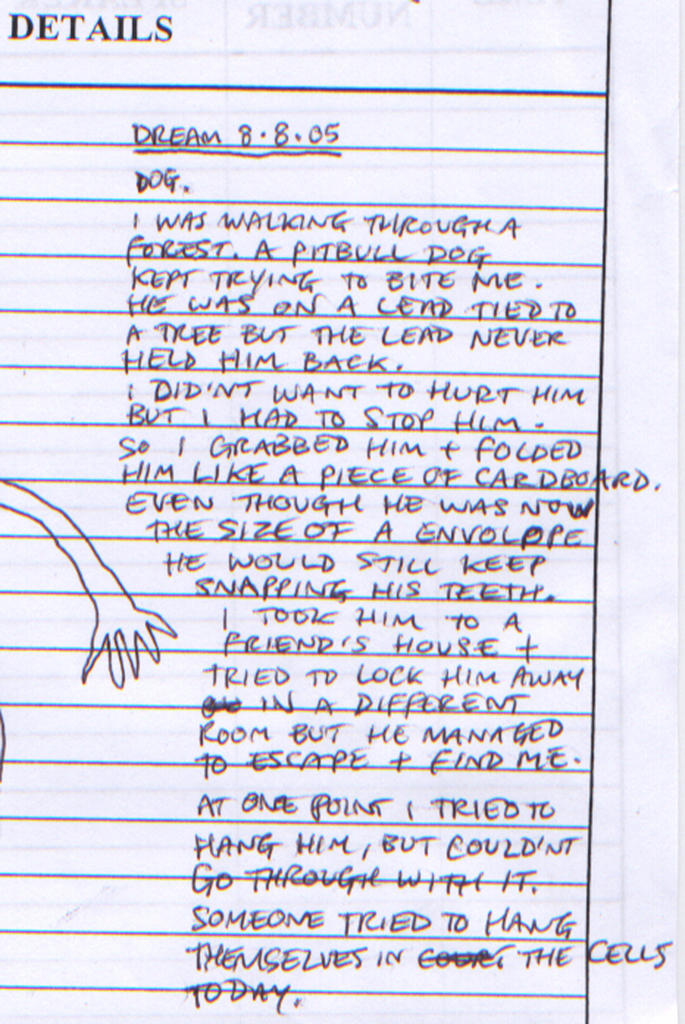 DETAILS
DREAM 8.8.05
DOG.
I WAS WALKING THROUGH A
FOREST. A PITBULL DOG
KEPT TRYING TO BITE ME.
HE WAS ON A LEAD TIED TO
A TREE BUT THE LEAD NEVER
HELD HIM BACK.
I DID'NT WANT TO HURT HIM
BUT I HAD TO STOP HIM.
SO I GRABBED HIM + FOLDED
HIM LIKE A PIECE OF CARDBOARD.
EVEN THOUGH HE WAS NOW
THE SIZE OF A ENVOLOPE
HE WOULD STILL KEEP
SNAPPING HIS TEETH.
I TOOK HIM TO A
FRIEND'S HOUSE +
TRIED TO LOCK HIM AWAY
IN A DIFFERENT
ROOM BUT HE MANAGED
TO ESCAPE + FIND ME.
AT ONE POINT I TRIED TO
HANG HIM, BUT COULD'NT
GO THROUGH WITH IT.
SOMEONE TRIED TO HANG
THEMSELVES IN THE CELLS
TODAY.